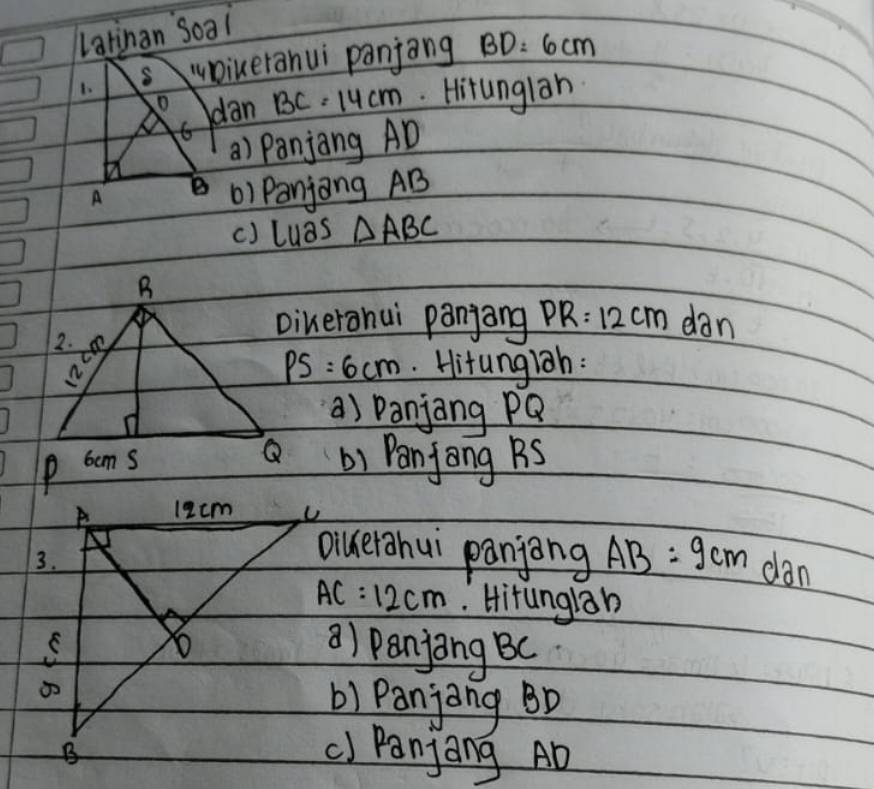 Latihan Soal
1. S 14 Diketahui panjang BD = 6cm
D dan BC = 14cm. Hitunglah
6 a) Panjang AD
A B b) Panjang AB
c) Luas △ABC
R
2. 12cm Diketahui panjang PR = 12cm dan
PS = 6cm. Hitunglah:
a) Panjang PQ
P 6cm S Q b) Panjang RS
A 12cm C
3. Diketahui panjang AB = 9cm dan
AC = 12cm. Hitunglah
D a) Panjang BC
9cm b) Panjang BD
B c) Panjang AD